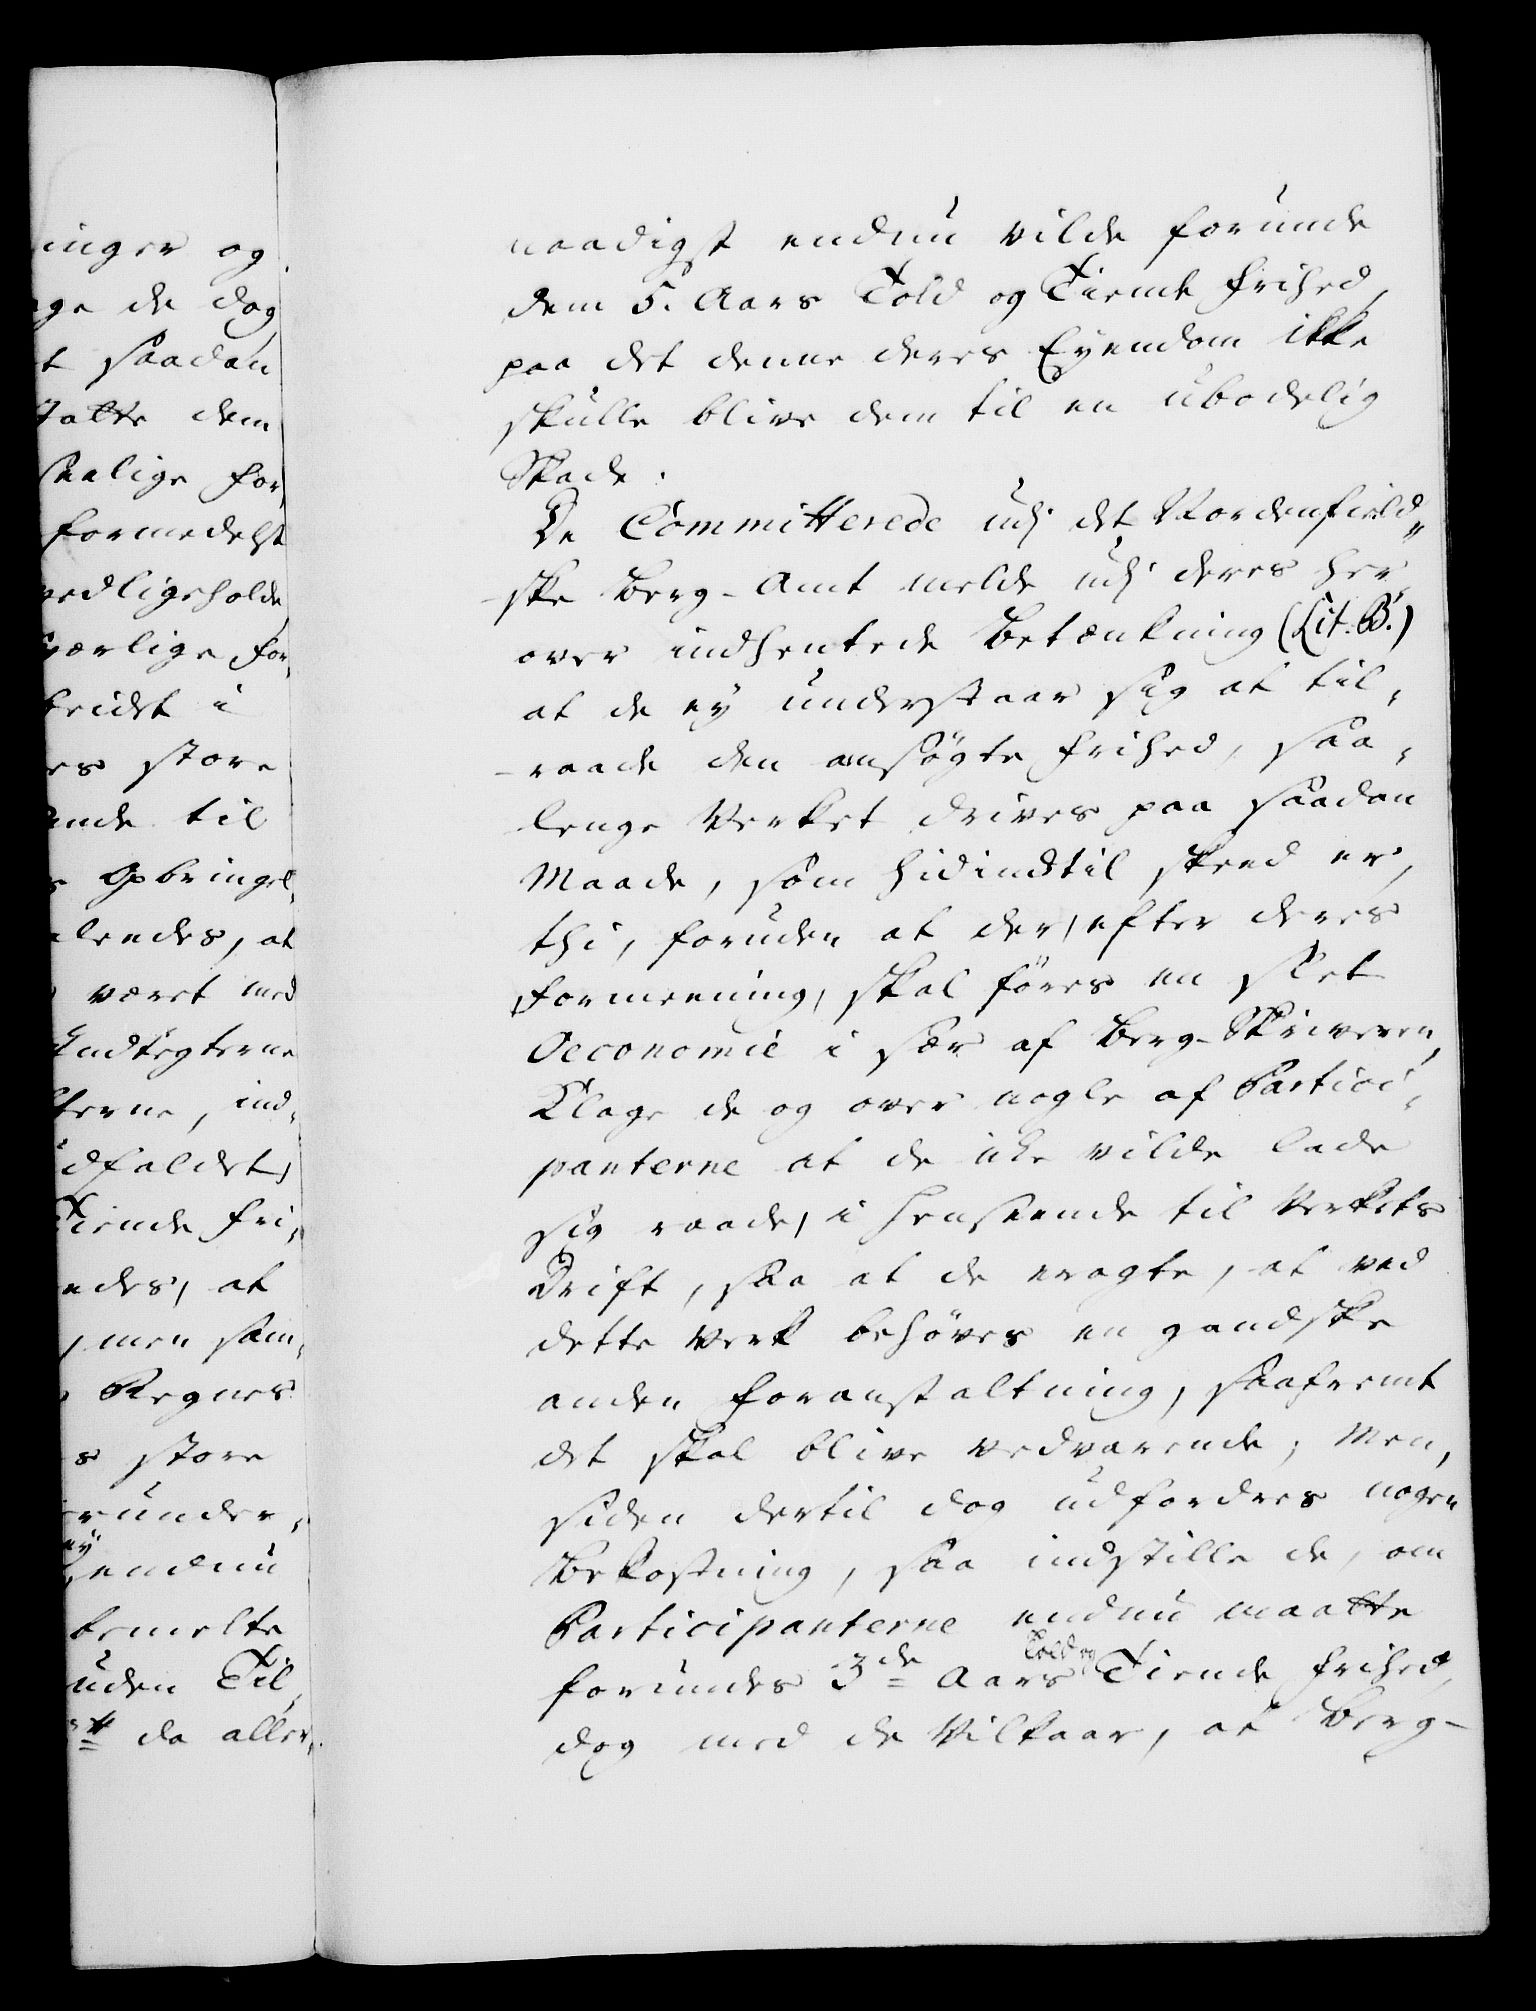 inger og
ge de dog
t saadan
tatte dem
saalige for,
formedelst
vedligeholde
værlige for,
beidet i
es store
ande til
s Opbringel,
lendes, at
været med
Indtegterne
terne, ind,
dfaldet,
Tiende fri,
ndes, at
, men sam,
Regnes
s store
runder,
ey
endnu
bemelte
uden Til,
da aller,
naadigst endnu vilde forunde
dem 5. Aars Told og Tiende frihed,
paa det denne deres Eyendom ikke
skulle blive dem til en ubodelig
Skade.
De Committerede udj det Nordenfield,,
ske Berg-Amt melde udj deres her,
over indhentede Betænkning (Lit. B.)
at de ey understaar sig at til,
raade den ansøgte frihed, saa,
lenge Verket drives paa saadan
Maade, som hidindtil skeed er,
thi, foruden at der, efter deres
formeening, skal føres en slet
Oeconomie i sær af Berg-Skriveren,
Klage de og over nogle af Partici,
panterne at de ike vilde lade
sig raade, i henseende til Verkets
Drift, saa at de eragte, at ved
dette Verk behøves en gandske
anden foranstaltning, saafremt
det skal blive vedvarende; Men,
siden dertil dog udfordres nogen
Bekostning, saa indstille de, om
Participanterne endnu maatte
forundes 3de Aars Told og Tiende frihed,
dog med de Vilkaar, at Berg-